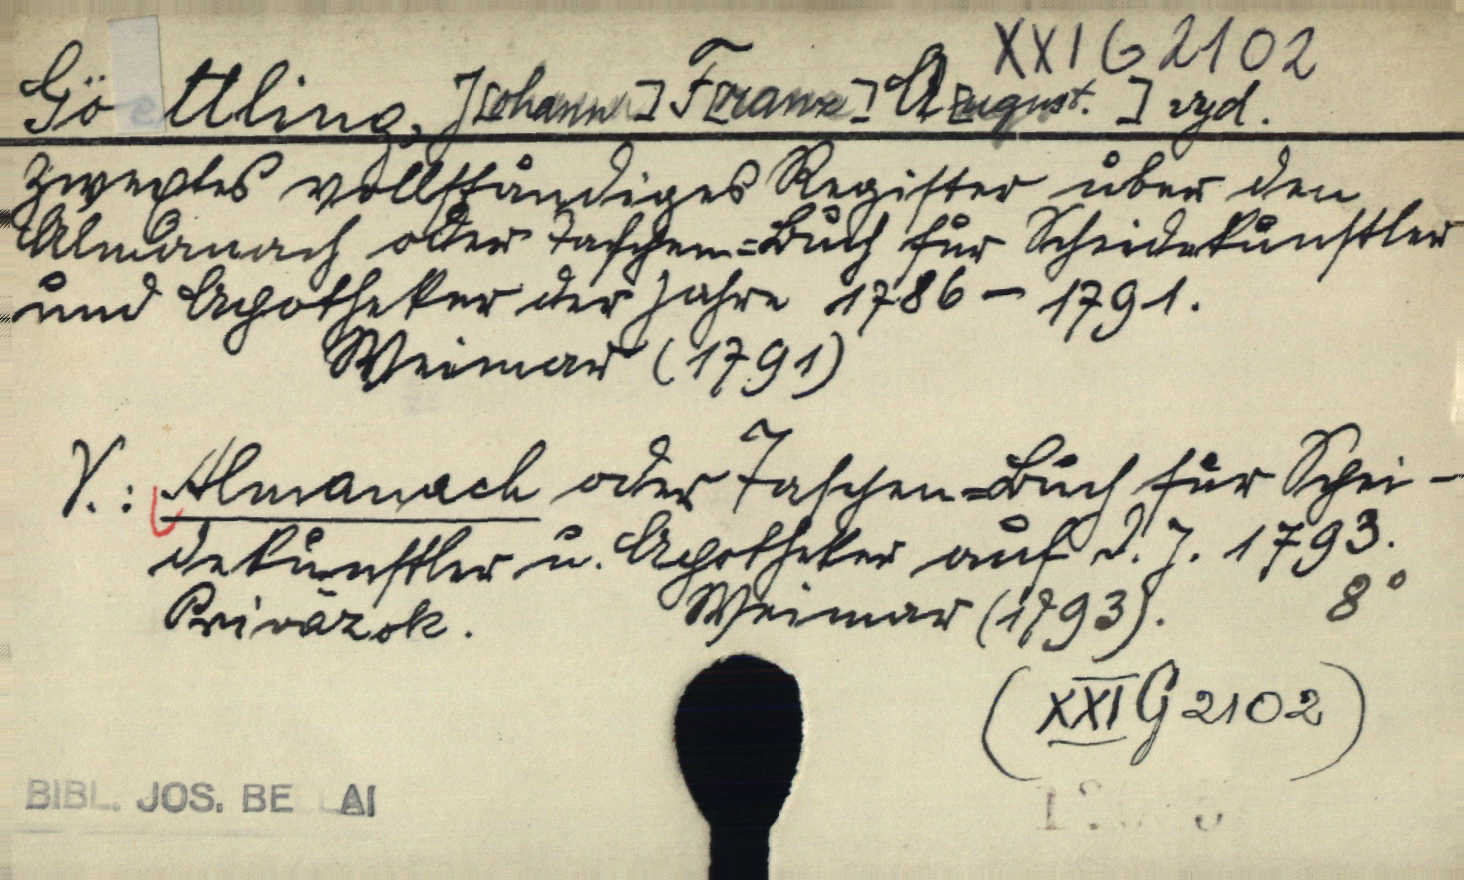 XXI G 2102
Göttling, J[ohann] F[ranz] A[ugust.] vyd.
Zweytes vollständiges Register über den
Almanach oder Taschen=Buch für Scheidekünstler
und Apotheker der Jahre 1786 – 1791.
Weimar (1791)
V.: Almanach oder Taschen=Buch für Schei-
dekünstler u. Apotheker auf d. J. 1793.
Privázok. Weimar (1793). 8°
(XXI G 2102)
BIBL. JOS. BE LAI